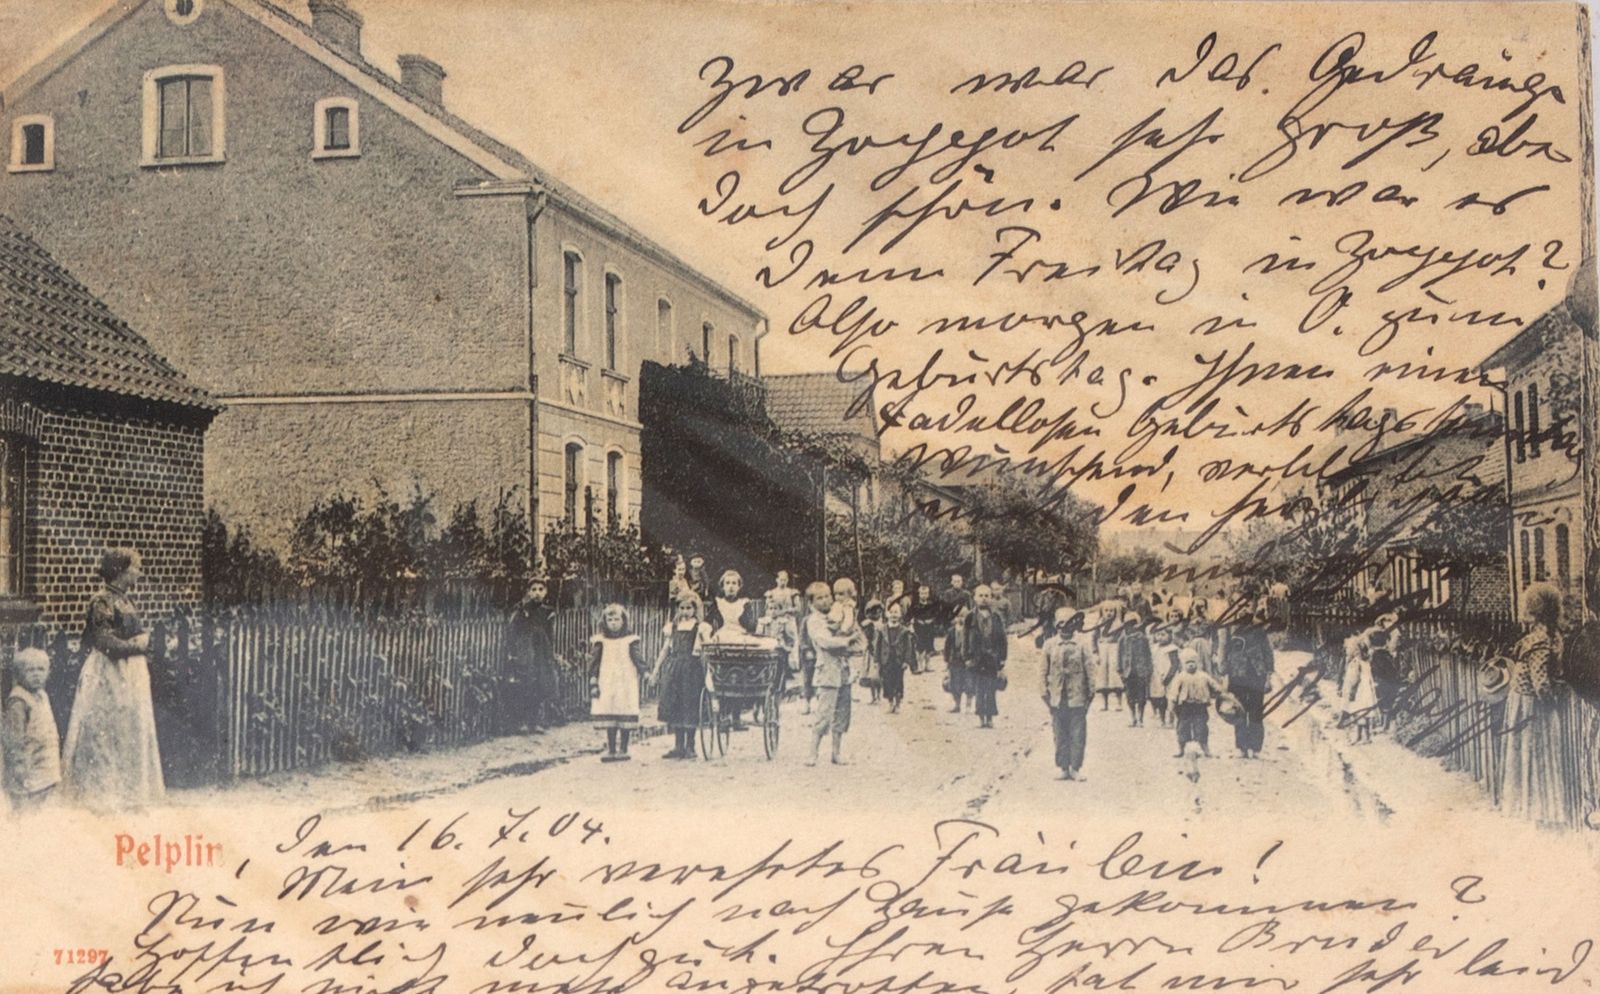 Pelplin, den 16. 7. 04.
Mein sehr verehrtes Fräulein!
Nun wie neulich nach Hause gekommen?
Hoffentlich doch gut. Ihren Herrn Bruder
habe ich nicht mehr angetroffen, hat mir sehr leid.
71297
zwar war das Gedränge
in Zoppot sehr groß, aber
doch schön. Wie war es
denn Freitag in Zoppot?
Also morgen in O. zum
Geburtstag. Ihnen einen
tadellosen Geburtstags
wünschend, verbleibt
mit den herzlichsten